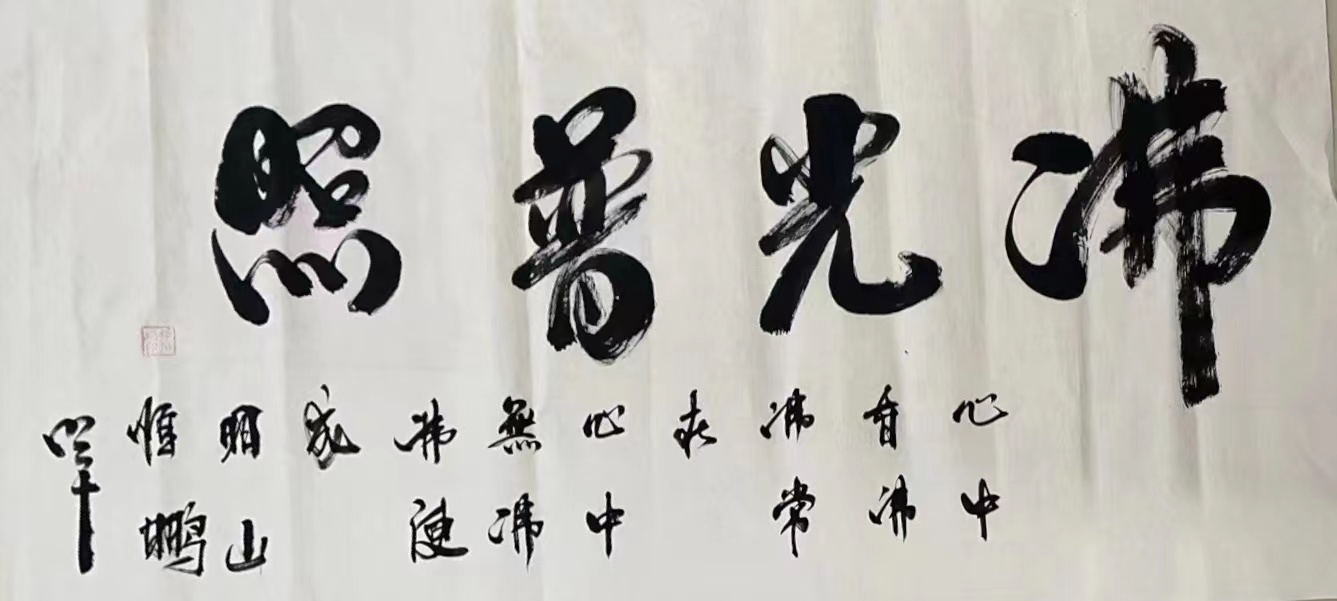 佛光普照
心中
有佛
佛常
在
心中
無佛
佛便
成
明山
惟鹏